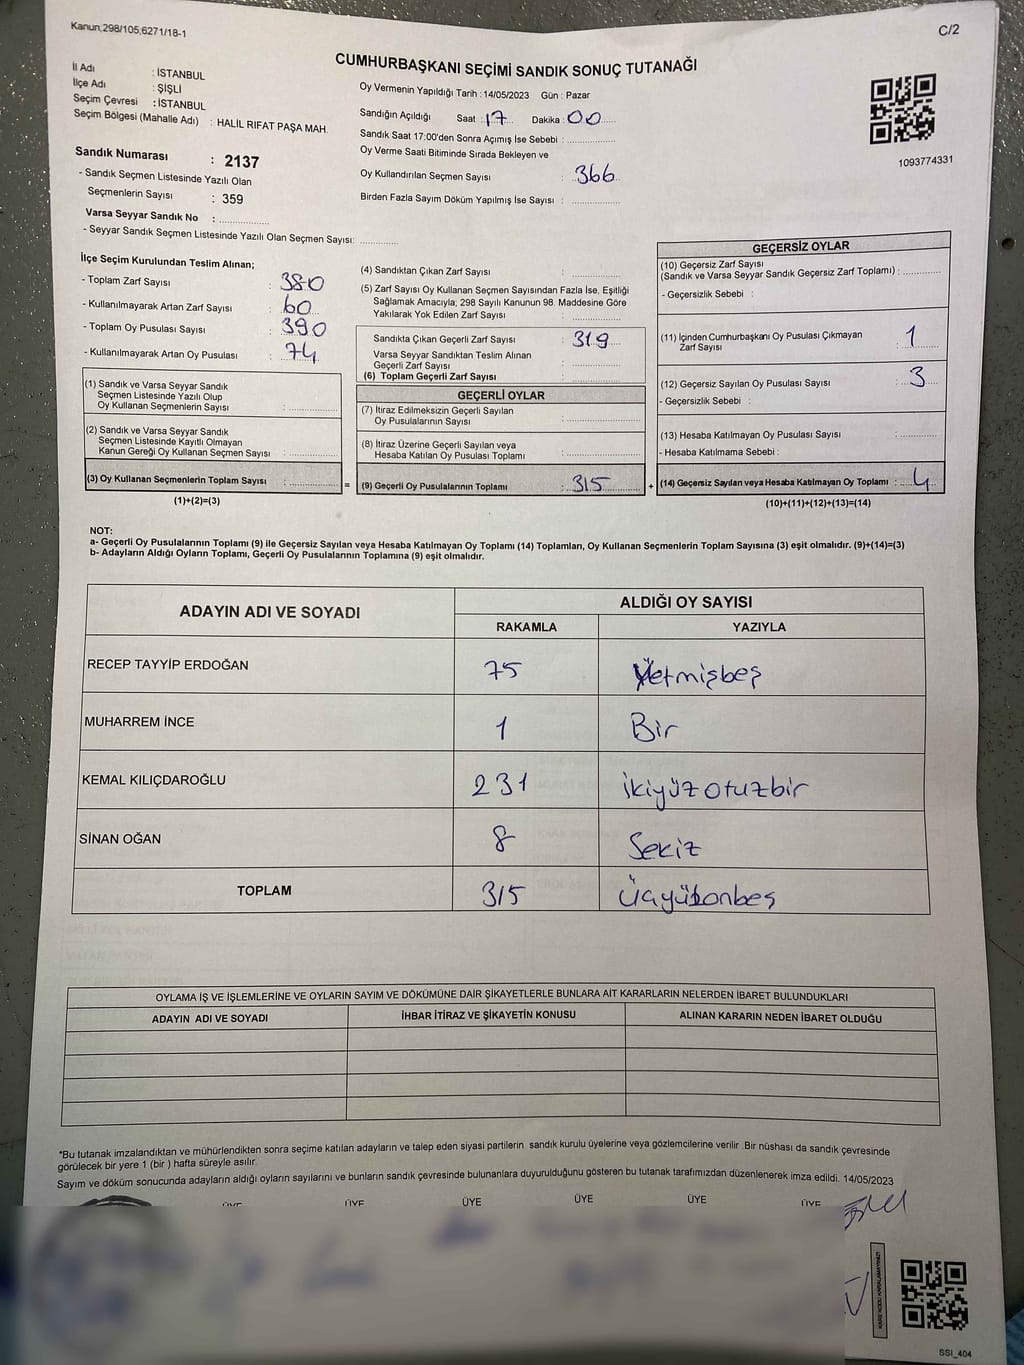 Kanun;298/105;6271/18-1
C/2
CUMHURBAŞKANI SEÇİMİ SANDIK SONUÇ TUTANAĞI
İl Adı : İSTANBUL
İlçe Adı : ŞİŞLİ
Seçim Çevresi : İSTANBUL
Seçim Bölgesi (Mahalle Adı) : HALİL RIFAT PAŞA MAH.
Sandık Numarası : 2137
- Sandık Seçmen Listesinde Yazılı Olan
Seçmenlerin Sayısı : 359
Varsa Seyyar Sandık No : ..................
- Seyyar Sandık Seçmen Listesinde Yazılı Olan Seçmen Sayısı: ..............
Oy Vermenin Yapıldığı Tarih : 14/05/2023 Gün : Pazar
Sandığın Açıldığı Saat : 17 Dakika : 00
Sandık Saat 17:00'den Sonra Açımış İse Sebebi : ..................
Oy Verme Saati Bitiminde Sırada Bekleyen ve
Oy Kullandırılan Seçmen Sayısı : 366
Birden Fazla Sayım Döküm Yapılmış İse Sayısı : ..................
1093774331
İlçe Seçim Kurulundan Teslim Alınan;
- Toplam Zarf Sayısı : 380
- Kullanılmayarak Artan Zarf Sayısı : 60
- Toplam Oy Pusulası Sayısı : 390
- Kullanılmayarak Artan Oy Pusulası : 74
(1) Sandık ve Varsa Seyyar Sandık
Seçmen Listesinde Yazılı Olup
Oy Kullanan Seçmenlerin Sayısı : ..................
(2) Sandık ve Varsa Seyyar Sandık
Seçmen Listesinde Kayıtlı Olmayan
Kanun Gereği Oy Kullanan Seçmen Sayısı : ..................
(3) Oy Kullanan Seçmenlerin Toplam Sayısı : .................. =
(1)+(2)=(3)
(4) Sandıktan Çıkan Zarf Sayısı : ..................
(5) Zarf Sayısı Oy Kullanan Seçmen Sayısından Fazla İse, Eşitliği
Sağlamak Amacıyla; 298 Sayılı Kanunun 98. Maddesine Göre
Yakılarak Yok Edilen Zarf Sayısı : ..................
Sandıkta Çıkan Geçerli Zarf Sayısı : 319
Varsa Seyyar Sandıktan Teslim Alınan
Geçerli Zarf Sayısı : ..................
(6) Toplam Geçerli Zarf Sayısı : ..................
GEÇERLİ OYLAR
(7) İtiraz Edilmeksizin Geçerli Sayılan
Oy Pusulalarının Sayısı : ..................
(8) İtiraz Üzerine Geçerli Sayılan veya
Hesaba Katılan Oy Pusulası Toplamı : ..................
(9) Geçerli Oy Pusulalarının Toplamı : 315 +
GEÇERSİZ OYLAR
(10) Geçersiz Zarf Sayısı
(Sandık ve Varsa Seyyar Sandık Geçersiz Zarf Toplamı) : ..............
- Geçersizlik Sebebi :
(11) İçinden Cumhurbaşkanı Oy Pusulası Çıkmayan
Zarf Sayısı : 1
(12) Geçersiz Sayılan Oy Pusulası Sayısı : 3
- Geçersizlik Sebebi :
(13) Hesaba Katılmayan Oy Pusulası Sayısı : ..............
- Hesaba Katılmama Sebebi :
(14) Geçersiz Sayılan veya Hesaba Katılmayan Oy Toplamı : 4
(10)+(11)+(12)+(13)=(14)
NOT:
a- Geçerli Oy Pusulalarının Toplamı (9) ile Geçersiz Sayılan veya Hesaba Katılmayan Oy Toplamı (14) Toplamları, Oy Kullanan Seçmenlerin Toplam Sayısına (3) eşit olmalıdır. (9)+(14)=(3)
b- Adayların Aldığı Oyların Toplamı, Geçerli Oy Pusulalarının Toplamına (9) eşit olmalıdır.
ADAYIN ADI VE SOYADI ALDIĞI OY SAYISI
RAKAMLA YAZIYLA
RECEP TAYYİP ERDOĞAN 75 Yetmişbeş
MUHARREM İNCE 1 Bir
KEMAL KILIÇDAROĞLU 231 İkiyüzotuzbir
SİNAN OĞAN 8 Sekiz
TOPLAM 315 Üçyüzonbeş
OYLAMA İŞ VE İŞLEMLERİNE VE OYLARIN SAYIM VE DÖKÜMÜNE DAİR ŞİKAYETLERLE BUNLARA AİT KARARLARIN NELERDEN İBARET BULUNDUKLARI
ADAYIN ADI VE SOYADI İHBAR İTİRAZ VE ŞİKAYETİN KONUSU ALINAN KARARIN NEDEN İBARET OLDUĞU
*Bu tutanak imzalandıktan ve mühürlendikten sonra seçime katılan adayların ve talep eden siyasi partilerin sandık kurulu üyelerine veya gözlemcilerine verilir. Bir nüshası da sandık çevresinde
görülecek bir yere 1 (bir ) hafta süreyle asılır.
Sayım ve döküm sonucunda adayların aldığı oyların sayılarını ve bunların sandık çevresinde bulunanlara duyurulduğunu gösteren bu tutanak tarafımızdan düzenlenerek imza edildi. 14/05/2023
ÜYE ÜYE ÜYE ÜYE ÜYE ÜYE
SSI_404